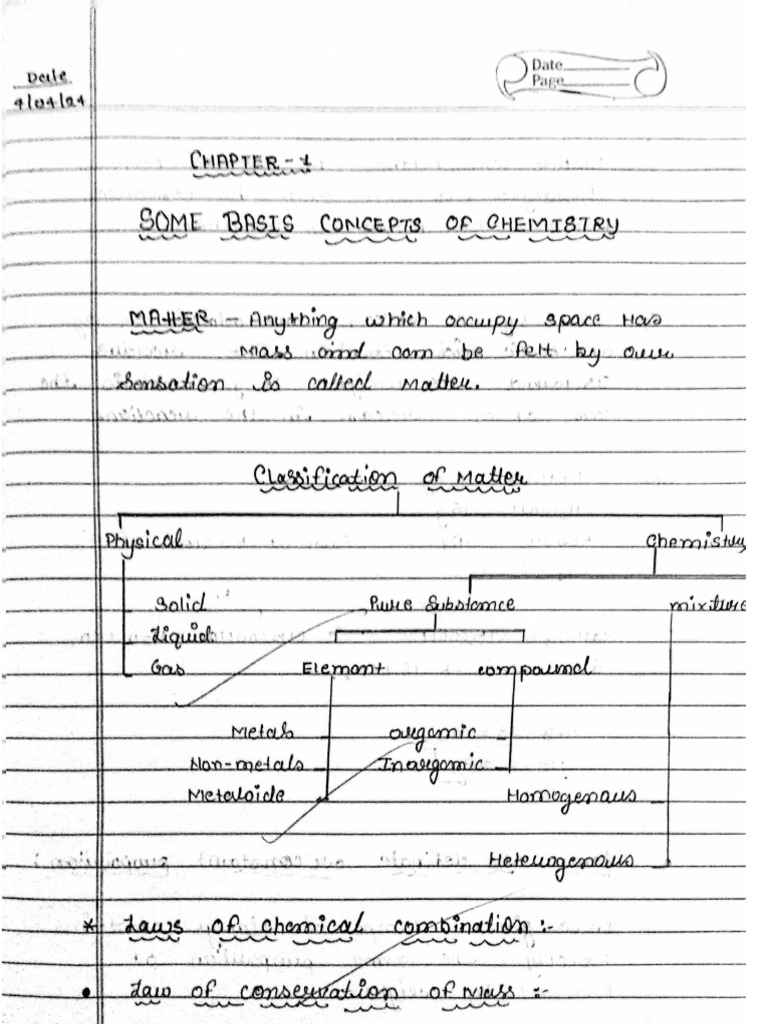 Date
9/04/24
Date
Page
CHAPTER-1
SOME BASIS CONCEPTS OF CHEMISTRY
MATTER - Anything which occupy space Has
Mass and can be felt by our
Sensation is called Matter.
Classification of Matter
Physical Chemistry
Solid Pure Substance mixture
Liquid
Gas Element compound
Metals organic
Non-metals Inorganic
Metaloide Homogenous
Heterogenous
* Laws of chemical combination :-
• Law of conservation of Mass :-